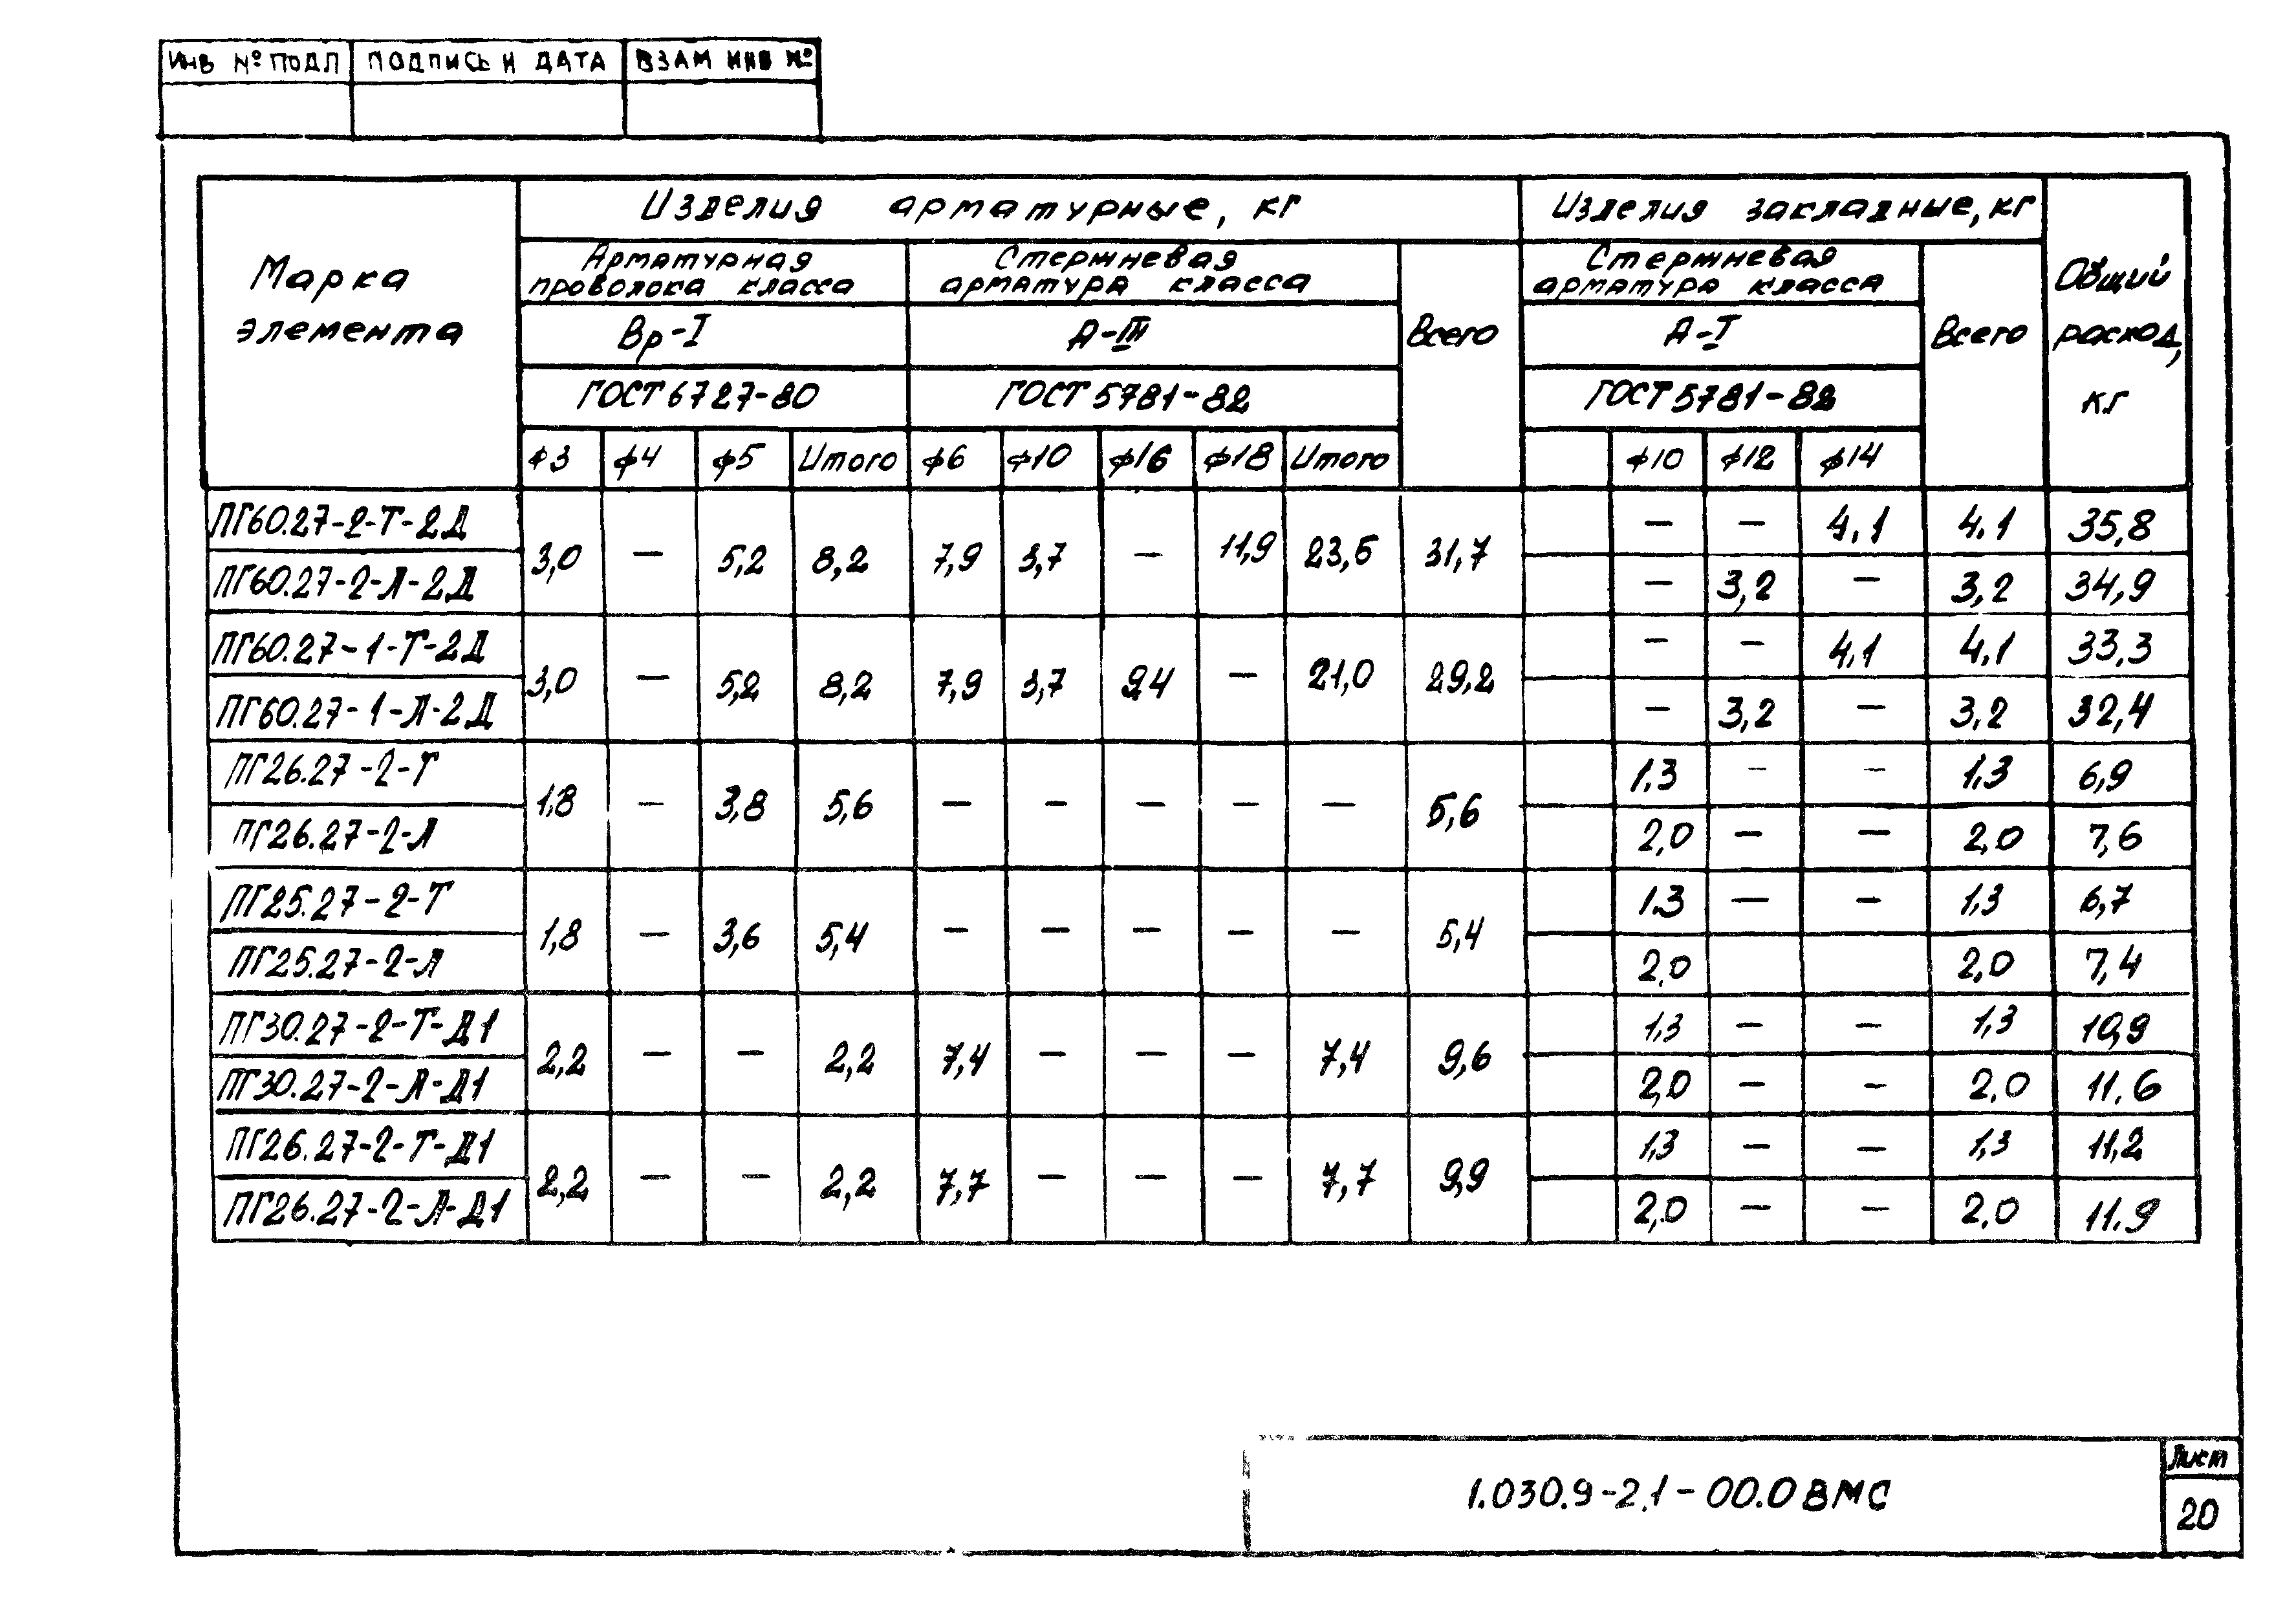 ИНВ № ПОДЛ ПОДПИСЬ И ДАТА ВЗАМ ИНВ №
Марка элемента
Изделия арматурные, кг
Изделия закладные, кг
Общий расход, кг
Арматурная проволока класса
Стержневая арматура класса
Всего
Стержневая арматура класса
Всего
Вр-I
А-III
А-I
ГОСТ 6727-80
ГОСТ 5781-82
ГОСТ 5781-82
ф3 ф4 ф5 Итого ф6 ф10 ф16 ф18 Итого ф10 ф12 ф14
ПГ60.27-2-Т-2Д — — 4,1 4.1 35,8
3,0 — 5,2 8,2 7,9 3,7 — 11,9 23,5 31,7
ПГ60.27-2-Л-2Д — 3,2 — 3,2 34,9
ПГ60.27-1-Т-2Д — — 4,1 4,1 33,3
3,0 — 5,2 8,2 7,9 3,7 9,4 — 21,0 29,2
ПГ60.27-1-Л-2Д — 3,2 — 3,2 32,4
ПГ26.27-2-Т 1.3 — — 1.3 6,9
1,8 — 3,8 5,6 — — — — — 5,6
ПГ26.27-2-Л 2,0 — — 2,0 7,6
ПГ25.27-2-Т 1.3 — — 1,3 6,7
1,8 — 3,6 5,4 — — — — — 5,4
ПГ25.27-2-Л 2,0 2,0 7,4
ПГ30.27-2-Т-Д1 1,3 — — 1,3 10,9
2,2 — — 2,2 7,4 — — — 7,4 9,6
ПГ30.27-2-Л-Д1 2,0 — — 2.0 11.6
ПГ26.27-2-Т-Д1 1,3 — — 1,3 11,2
2,2 — — 2,2 7,7 — — — 7,7 9,9
ПГ26.27-2-Л-Д1 2,0 — — 2.0 11.9
1.030.9-2.1-00.0 ВМС
Лист
20